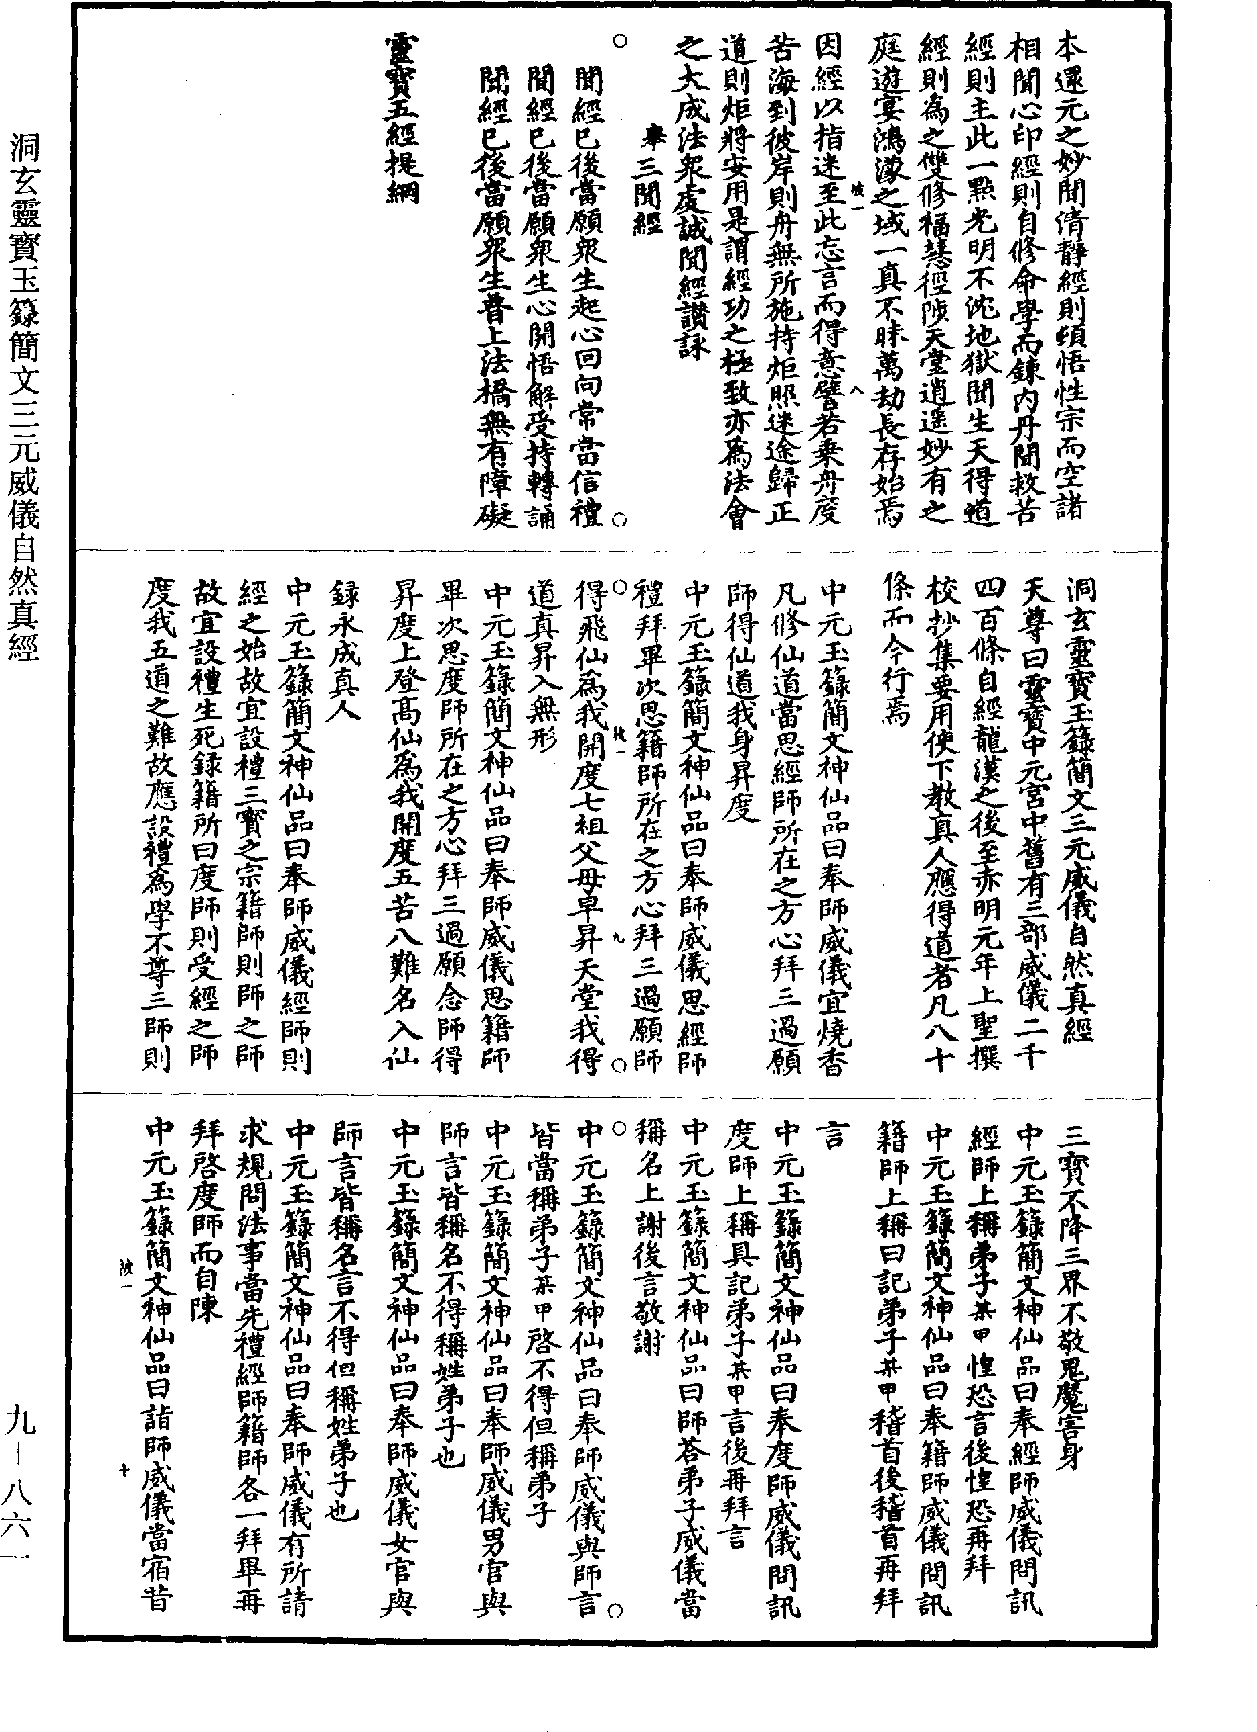 本還元之妙聞清靜經則頓悟性宗而空諸
相聞心印經則自修命學而鍊內丹聞救苦
經則主此一點光明不沈地獄聞生天得道
經則為之雙修福慧徑陟天堂逍遥妙有之
庭遊宴鴻濛之域一真不昧萬劫長存始焉
因經以指迷至此忘言而得意譬若乗舟度
苦海到彼岸則舟無所施持炬照迷途歸正
道則炬將安用是謂經功之極致亦爲法會
之大成法衆虔誠聞經讃詠
舉三聞經
聞經已後當願衆生起心回向常當信禮
聞經已後當願衆生心開悟解受持轉誦
聞經已後當願衆生普上法橋無有障礙
靈寶五經提綱
洞玄靈寶玉籙簡文三元威儀自然真經
天尊曰靈寶中元宮中舊有三部威儀二千
四百條自經龍漢之後至赤明元年上聖撰
校抄集要用使下教真人應得道者凡八十
條而今行焉
中元玉籙簡文神仙品曰奉師威儀宜燒香
凡修仙道當思經師所在之方心拜三過願
師得仙道我身昇度
中元玉籙簡文神仙品曰奉師威儀思經師
禮拜畢次思籍師所在之方心拜三過願師
得飛仙爲我開度七祖父母早昇天堂我得
道真昇入無形
中元玉籙簡文神仙品曰奉師威儀思籍師
畢次思度師所在之方心拜三過願念師得
昇度上登髙仙爲我開度五苦八難名入仙
録永成真人
中元玉籙簡文神仙品曰奉師威儀經師則
經之始故宜設禮三寳之宗籍師則師之師
故宜設禮生死録籍所曰度師則受經之師
度我五道之難故應設禮爲學不尊三師則
三寳不降三界不敬鬼魔害身
中元玉籙簡文神仙品曰奉經師威儀問訊
經師上稱弟子某甲惶恐言後惶恐再拜
中元玉籙簡文神仙品曰奉籍師威儀問訊
籍師上稱曰記弟子某甲稽首後稽首再拜
言
中元玉籙簡文神仙品曰奉度師威儀問訊
度師上稱具記弟子某甲言後再拜言
中元玉籙簡文神仙品曰師荅弟子威儀當
稱名上謝後言敬謝
中元玉籙簡文神仙品曰奉師威儀與師言
皆當稱弟子某甲啓不得但稱弟子
中元玉籙簡文神仙品曰奉師威儀男官與
師言皆稱名不得稱姓弟子也
中元玉籙簡文神仙品曰奉師威儀女官與
師言皆稱名言不得但稱姓弟子也
中元玉籙簡文神仙品曰奉師威儀有所請
求規問法事當先禮經師籍師各一拜畢再
拜啓度師而自陳
中元玉籙簡文神仙品曰詣師威儀當宿昔
洞玄靈寶玉籙簡文三元威儀自然真經
九—八六一